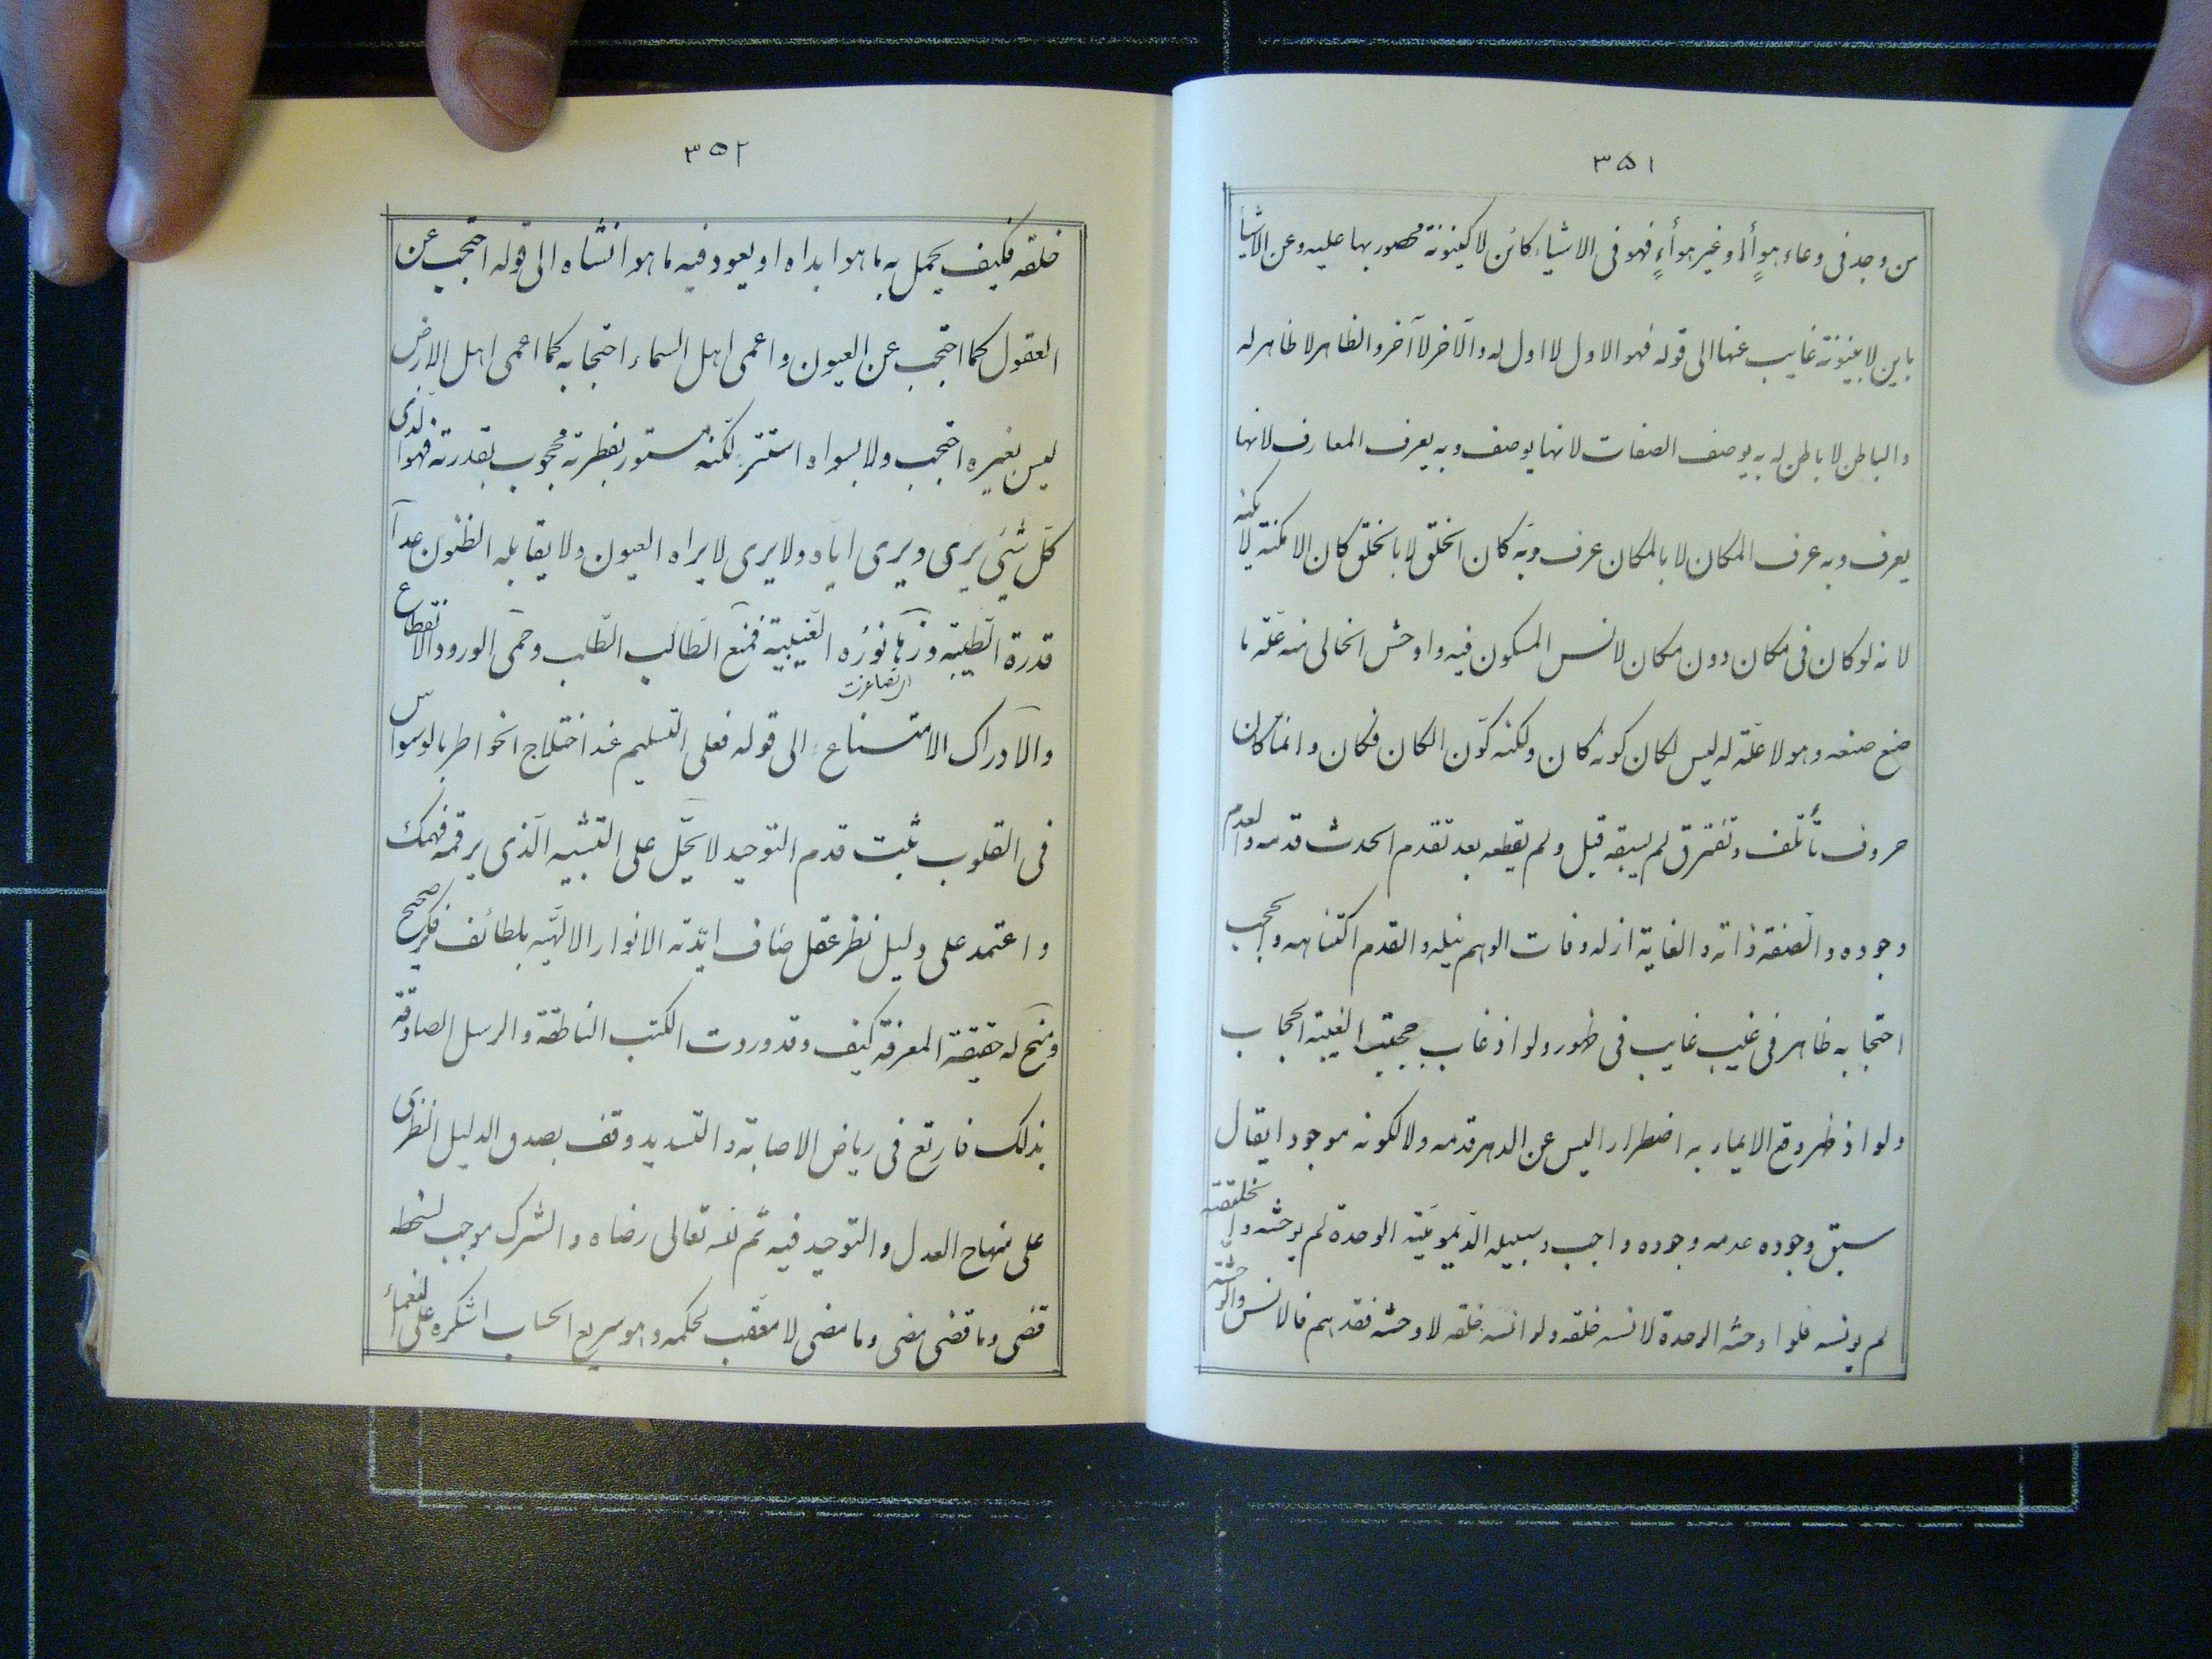 ٣٥١
من وجد فی وعاء هوأً او غیر هواءٍ فهو فی الاشیاء کائن لا کینونة محصور بها علیه و عن الاشیأ
باین لا بینونة غایب عنها الی قوله فهو الاول لا اول له و الآخر لا آخر و الظاهر لا ظاهر له
و الباطن لا باطن له به یوصف الصفات لا بها یوصف و به یعرف المعارف لا بها
یعرف و به عرف المکان لا بالمکان عرف و به کان الخلق لا بالخلق کان الامکنة لا تکنه
لانه لو کان فی مکان دون مکان لانس المسکون فیه و اوحش الخالی منه علّة ما
صنع صنعه و هو لا علّة له لیس لکان کونه کان و لکنه کوّن الکان فکان و انما کان
حروف تأتلف و تفترق لم یسبقه قبل و لم یقطعه بعد تقدم الحدث قدمه و العدم
وجوده و الصفة ذاته و الغایة ازله و فات الوهم نیله و القدم اکتناهه و احجب
احتجابه ظاهر فی غیب غایب فی ظهور و لو اذ غاب حجبت الغیبة الحجاب
و لو اذ ظهر وقع الایماء به اضطرارا لیس عن الدهر قدمه و لا لکونه موجود ایقال
سبق وجوده عدمه وجوده واجب و سبیله الدیمومیّة الوحدة لم یوحشه و الخلقة
لم یونسه فلو اوحشه الوحدة لانسه خلقه و لو انسه خلقه لاوحشه فقدهم فالانس و الوحشة
٣٥٢
خلقه فکیف یحمل به ما هو ابداه او یعود فیه ما هو انشاه الی قوله احتجب عن
العقول کما احتجب عن العیون و اعمی اهل السماء احتجابه کما اعمی اهل الارض
لیس بغیره احتجب و لا بسواه استتر لکنه مستور بفطرته محجوب بقدرته فهو الذی
کل شیٔ یری و یری ایاه و لا یری لا یراه العیون و لا یقابله الظنون عدآ
قدرة الطیبة و نورُه الغیبیة فمنع الطالب الطّلب و حمی الورود الانقطاع
و الآدراک الامتناع الی قوله فعلی التسلیم عند اختلاج الخواطر بالوسواس
فی القلوب ثبت قدم التوحید لا یحّل علی التشبیه الّذی یرقمه فهمک
و اعتمد علی دلیل نظر عقل صاف ایّدته الانوار الالهیّه بلطائف فکر صحیح
و منح له حقیقة المعرفة کیف و قد وردت الکتب الناطقة و الرسل الصادقة
بذلک فارتع فی ریاض الاصابة و التسدید و قف بصدق الدلیل النظری
علی منهاج العدل و التوحید فیه ثم لله تعالی رضاه و الشرک موجب لسخطه
قضی و ما قضی مضی و ما مضی لا معقب لحکمه و هو سریع الحساب اشکره علی النعمأ